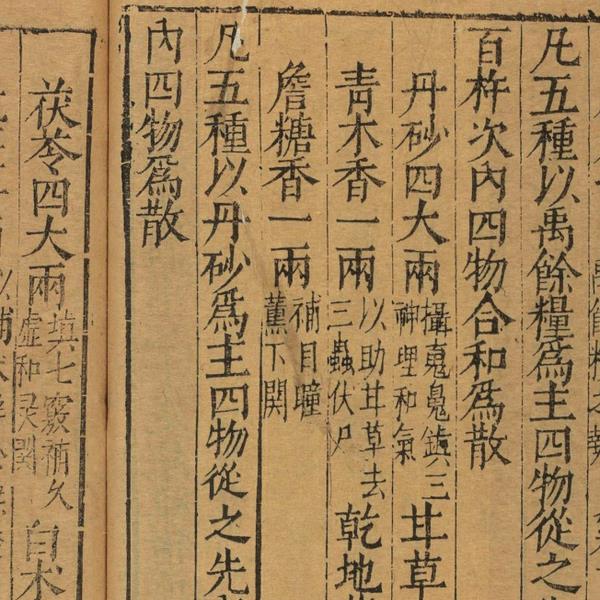 凡五種以禹餘糧爲主四物從之
百杵次內四物合和爲散
丹砂四大兩攝䰟鬼鎮三神理和氣甘草
青木香一兩以助甘草去三蟲伏尸乾地
詹糖香一兩補目瞳薰下関
凡五種以丹砂爲主四物從之先
內四物爲散
茯苓四大兩填七竅補久虛和 白术